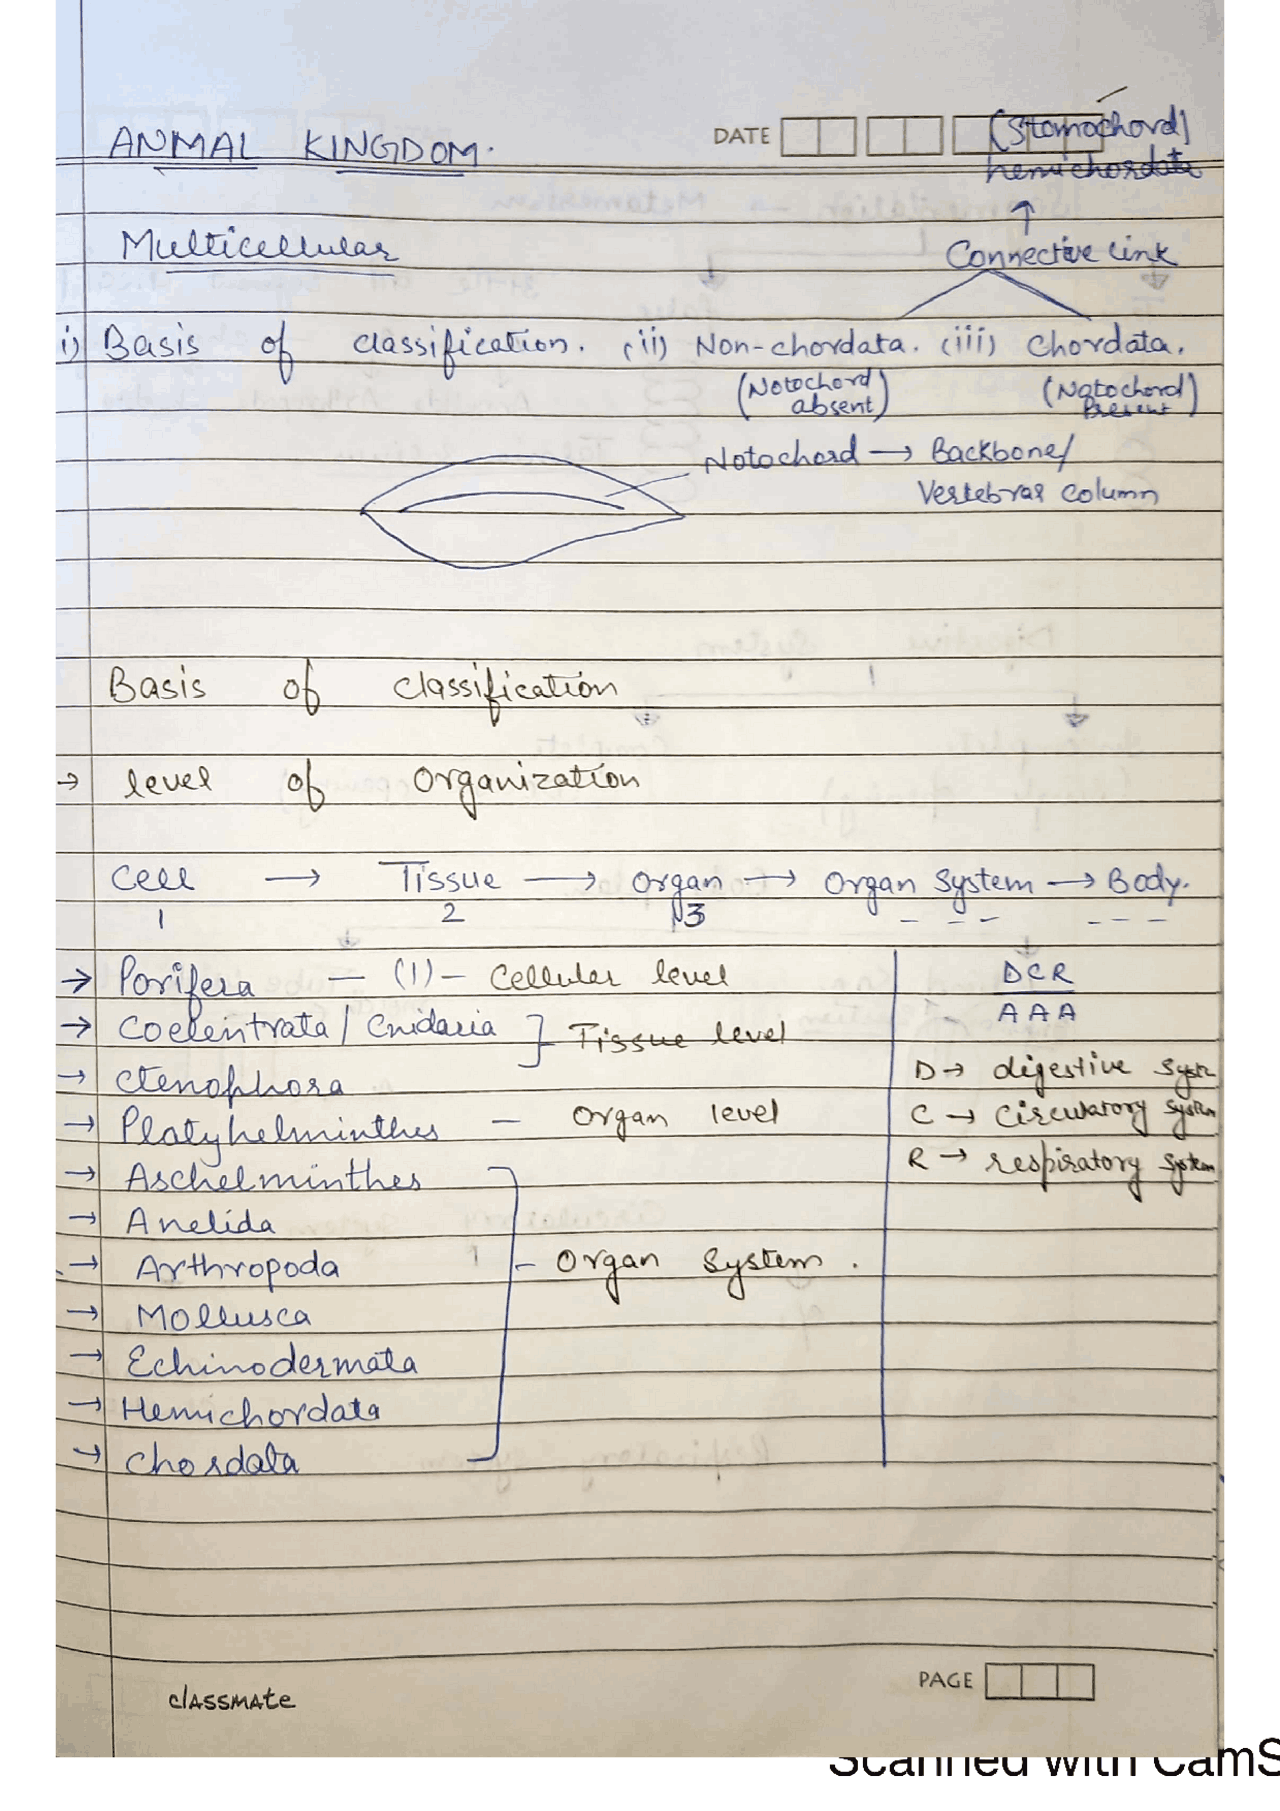 ANMAL KINGDOM.
DATE
(Stomochord)
hemichordata
Multicellular
Connective link
i) Basis of classification. (ii) Non-chordata. (iii) Chordata.
(Notochord absent)
(Notochord Present)
Notochord → Backbone/
Vertebral column
Basis of classification
→ level of Organization
Cell → Tissue → Organ → Organ System → Body.
1 2 3 - - - - - -
→ Porifera — (1) - Cellular level
→ Coelentrata / Cnidaria } Tissue level
→ Ctenophora
→ Platyhelminthes — Organ level
→ Aschelminthes
→ Anelida
→ Arthropoda - Organ System.
→ Mollusca
→ Echinodermata
→ Hemichordata
→ Chordata
DCR
AAA
D → digestive
C → Circulatory System
R → respiratory System
classmate
PAGE
Scanned with CamS